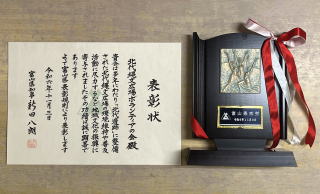 表彰状
北代縄文広場ボランティアの会殿
貴会は多年にわたり北代遺跡に整備
された北代縄文広場の環境維持や普及
活動に尽力するなど地域文化の振興に
寄与されましたその功績は誠に顕著で
あります
よって富山県表彰規則により表彰します
令和六年十一月三日
富山県知事 新田八朗
富山県表彰